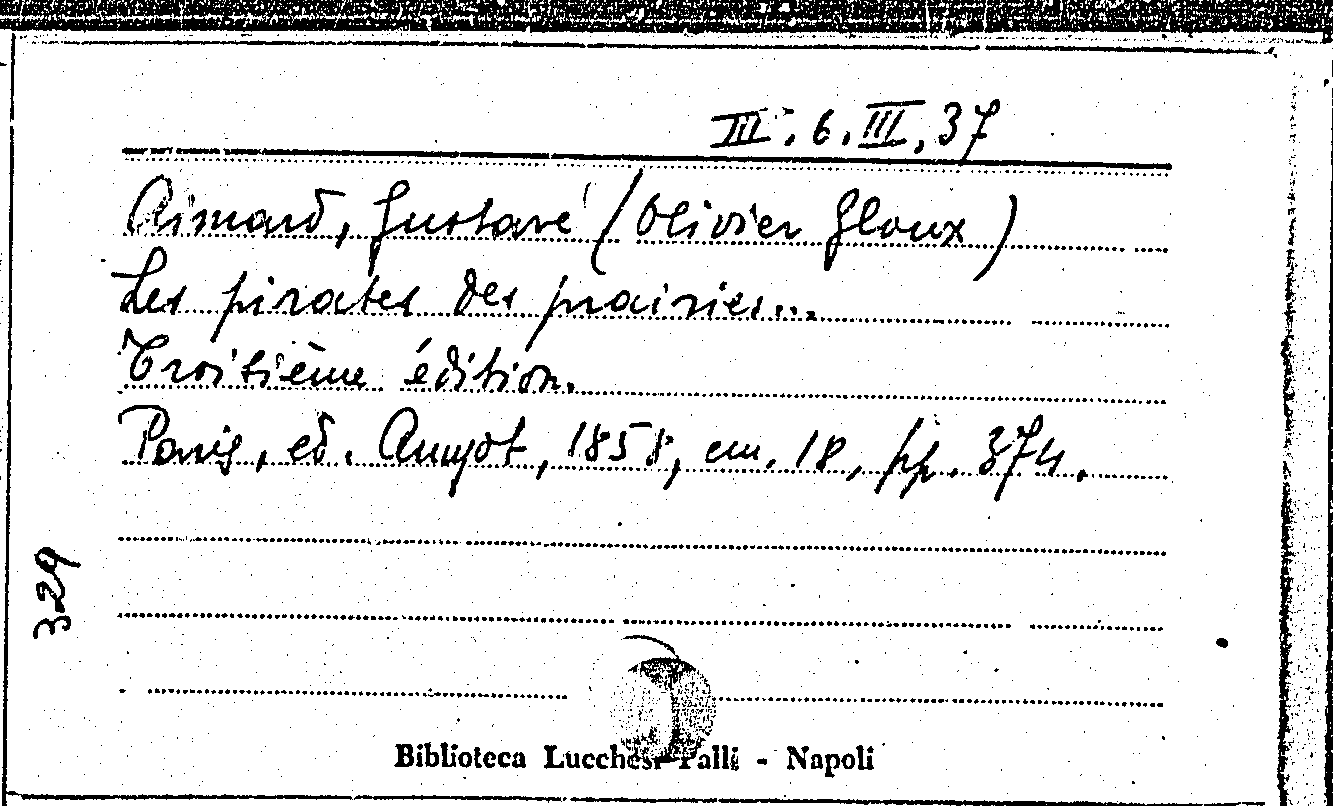 III. 6. III. 37
Aimard, Gustave (Olivier Gloux)
Les pirates des prairies...
Troisième édition.
Paris, ed. Amyot, 1858, cm. 18, pp. 374.
329
Biblioteca Lucchesi Palli - Napoli